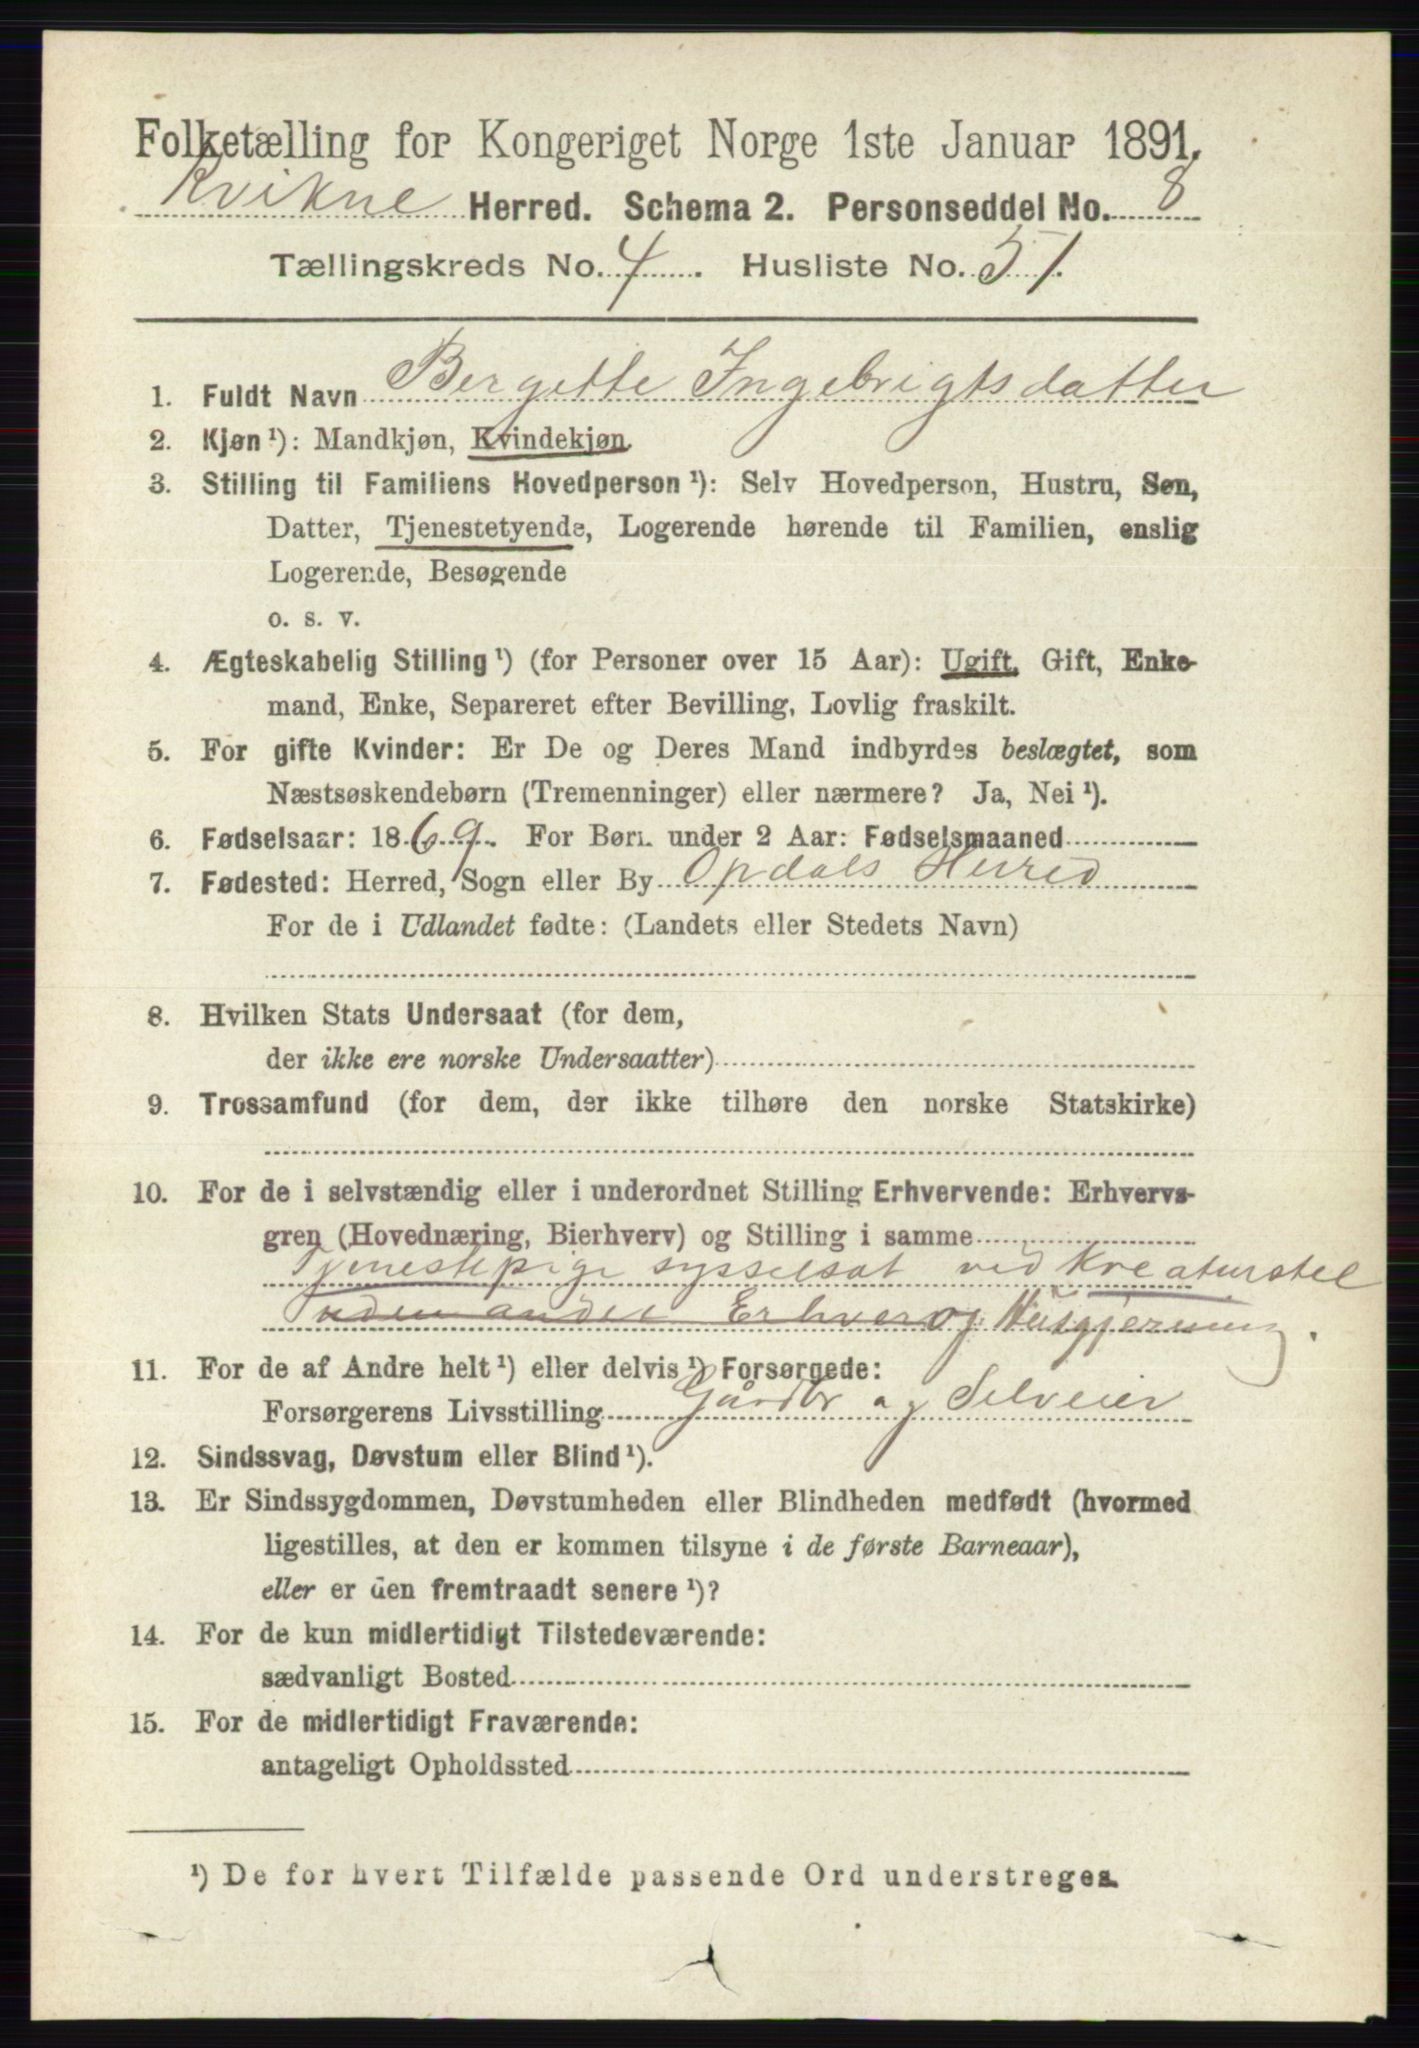 Folketælling for Kongeriget Norge 1ste Januar 1891.
Kvikne Herred. Schema 2. Personseddel No. 8
Tællingskreds No. 4. Husliste No. 51.
1. Fuldt Navn Bergette Ingebrigtsdatter
2. Kjøn ¹): Mandkjøn, Kvindekjøn.
3. Stilling til Familiens Hovedperson ¹): Selv Hovedperson, Hustru, Søn,
Datter, Tjenestetyende, Logerende hørende til Familien, enslig
Logerende, Besøgende
o. s. v.
4. Ægteskabelig Stilling ¹) (for Personer over 15 Aar): Ugift, Gift, Enke-
mand, Enke, Separeret efter Bevilling, Lovlig fraskilt.
5. For gifte Kvinder: Er De og Deres Mand indbyrdes beslægtet, som
Næstsøskendebørn (Tremenninger) eller nærmere? Ja, Nei ¹).
6. Fødselsaar: 1869. For Børn under 2 Aar: Fødselsmaaned
7. Fødested: Herred, Sogn eller By Opdals Herred
For de i Udlandet fødte: (Landets eller Stedets Navn)
8. Hvilken Stats Undersaat (for dem,
der ikke ere norske Undersaatter)
9. Trossamfund (for dem, der ikke tilhøre den norske Statskirke)
10. For de i selvstændig eller i underordnet Stilling Erhvervende: Erhvervs-
gren (Hovednæring, Bierhverv) og Stilling i samme
Tjenestepige sysselsat ved Kreaturstel
uden andet Erhverv og Husgjerning.
11. For de af Andre helt ¹) eller delvis ¹) Forsørgede:
Forsørgerens Livsstilling Gårdbr og Selveier
12. Sindssvag, Døvstum eller Blind ¹).
13. Er Sindssygdommen, Døvstumheden eller Blindheden medfødt (hvormed
ligestilles, at den er kommen tilsyne i de første Barneaar),
eller er den fremtraadt senere ¹)?
14. For de kun midlertidigt Tilstedeværende:
sædvanligt Bosted
15. For de midlertidigt Fraværende:
antageligt Opholdssted
¹) De for hvert Tilfælde passende Ord understreges.